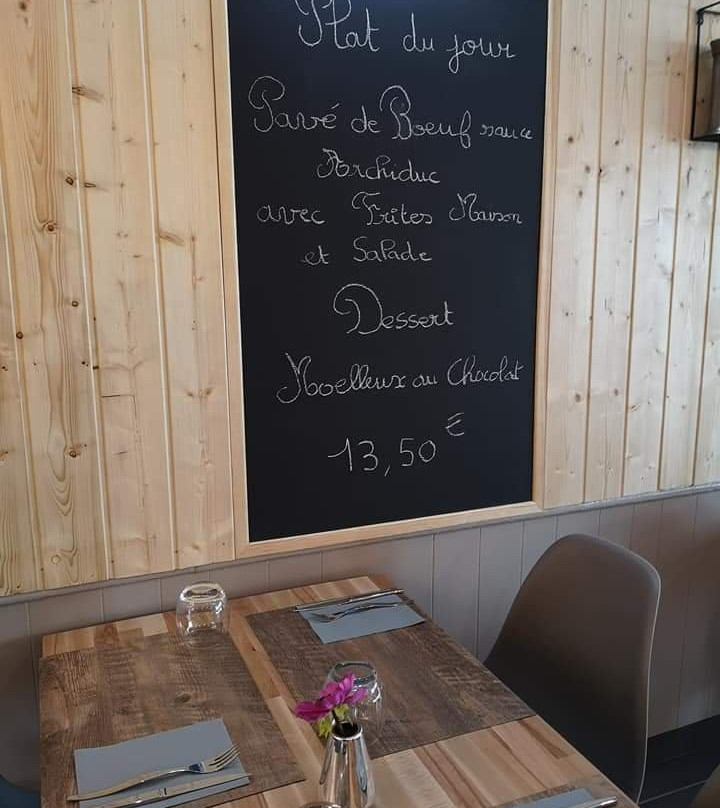 Plat du jour
Pavé de Boeuf sauce
Archiduc
avec Frites Maison
et Salade
Dessert
Moelleux au Chocolat
13,50 €